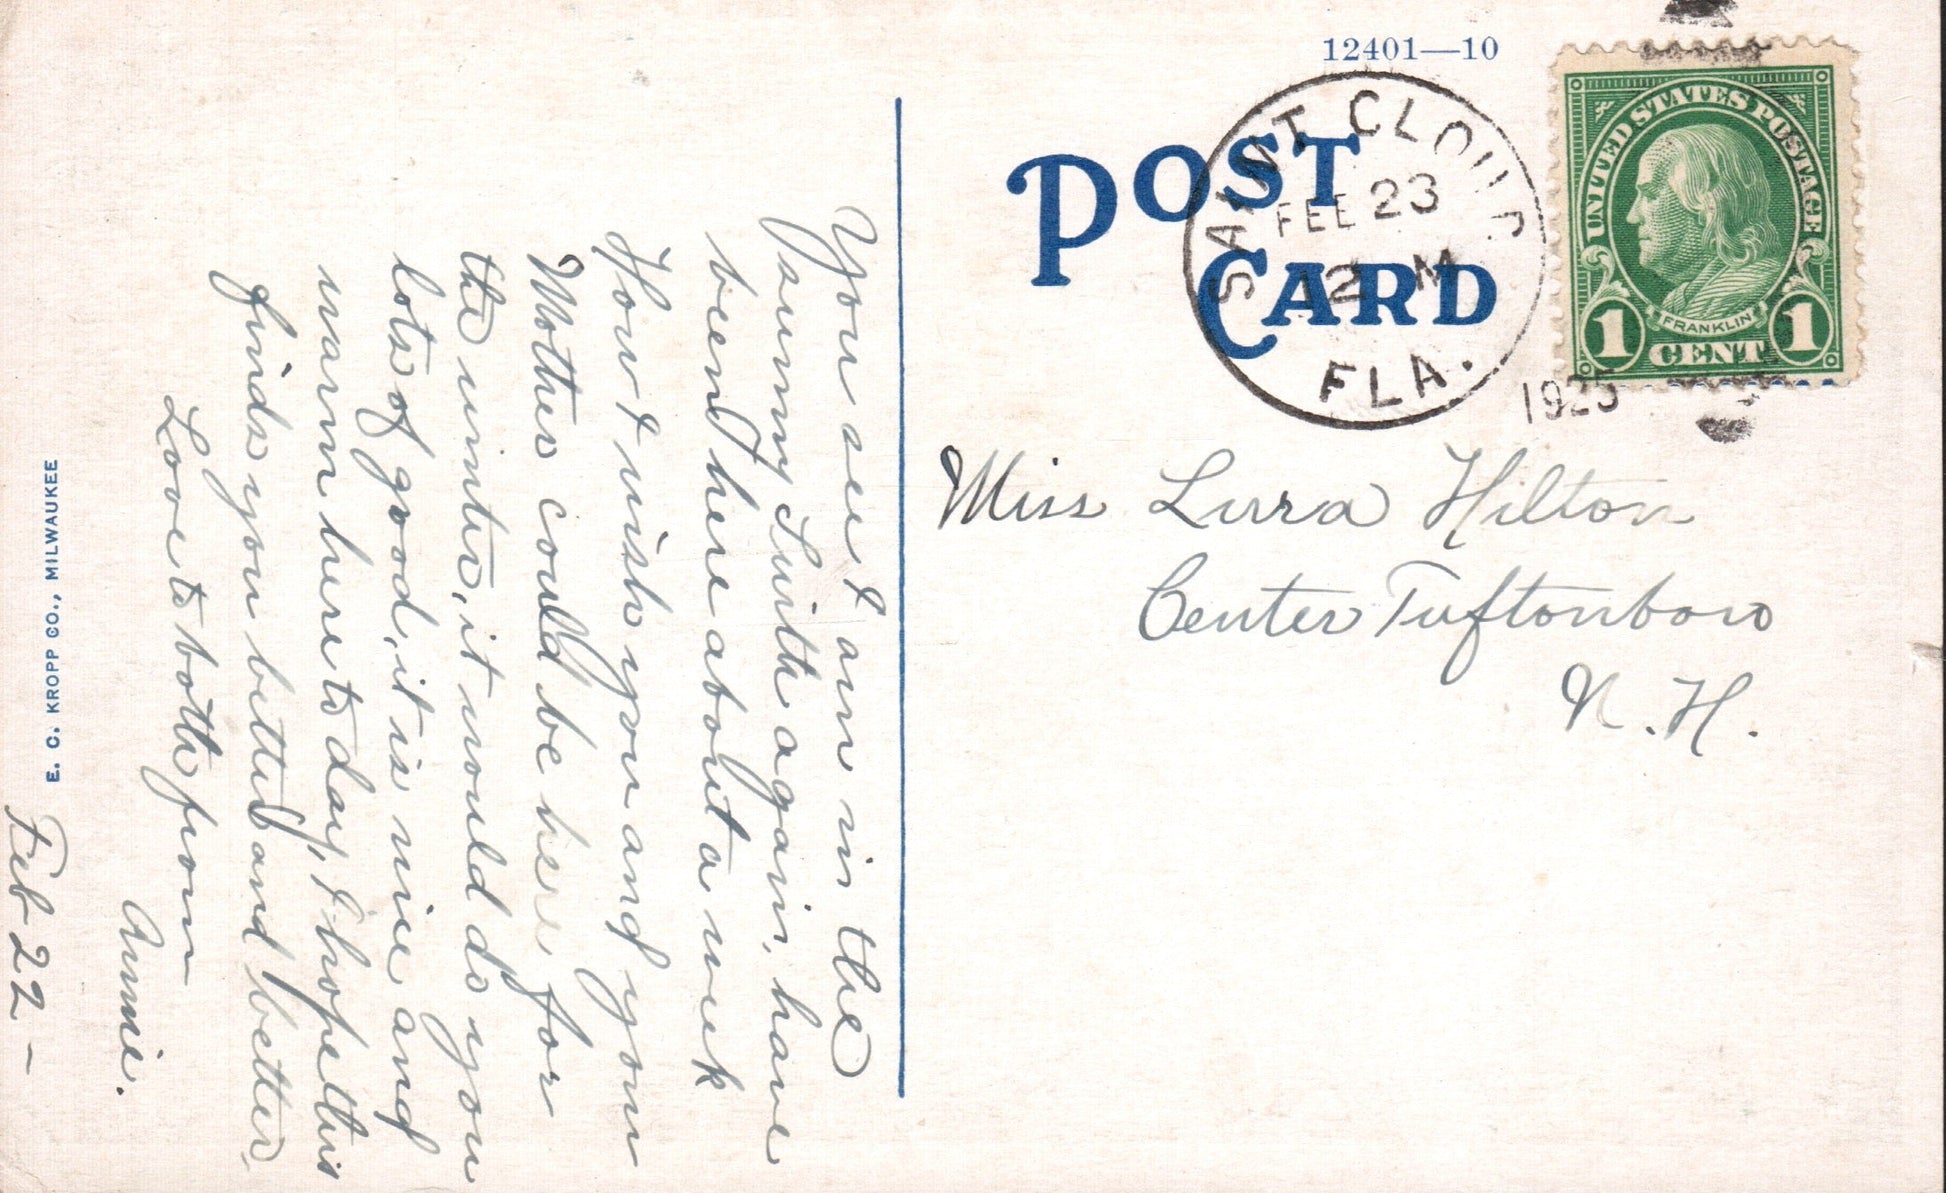 12401—10
POST CARD
SAINT CLOUD
FEB 23
12 M
FLA.
1925
UNITED STATES POSTAGE
FRANKLIN
1 CENT 1
Miss Lura Hilton
Center Tuftonboro
N. H.
You see I am in the
sunny South again, have
been here about a week
How I wish you and your
Mother could be here for
the winter, it would do you
lots of good, it is nice and
warm here to day, I hope this
finds you better and better.
Love to both from
Annie.
Feb 22 -
E. C. KROPP CO., MILWAUKEE